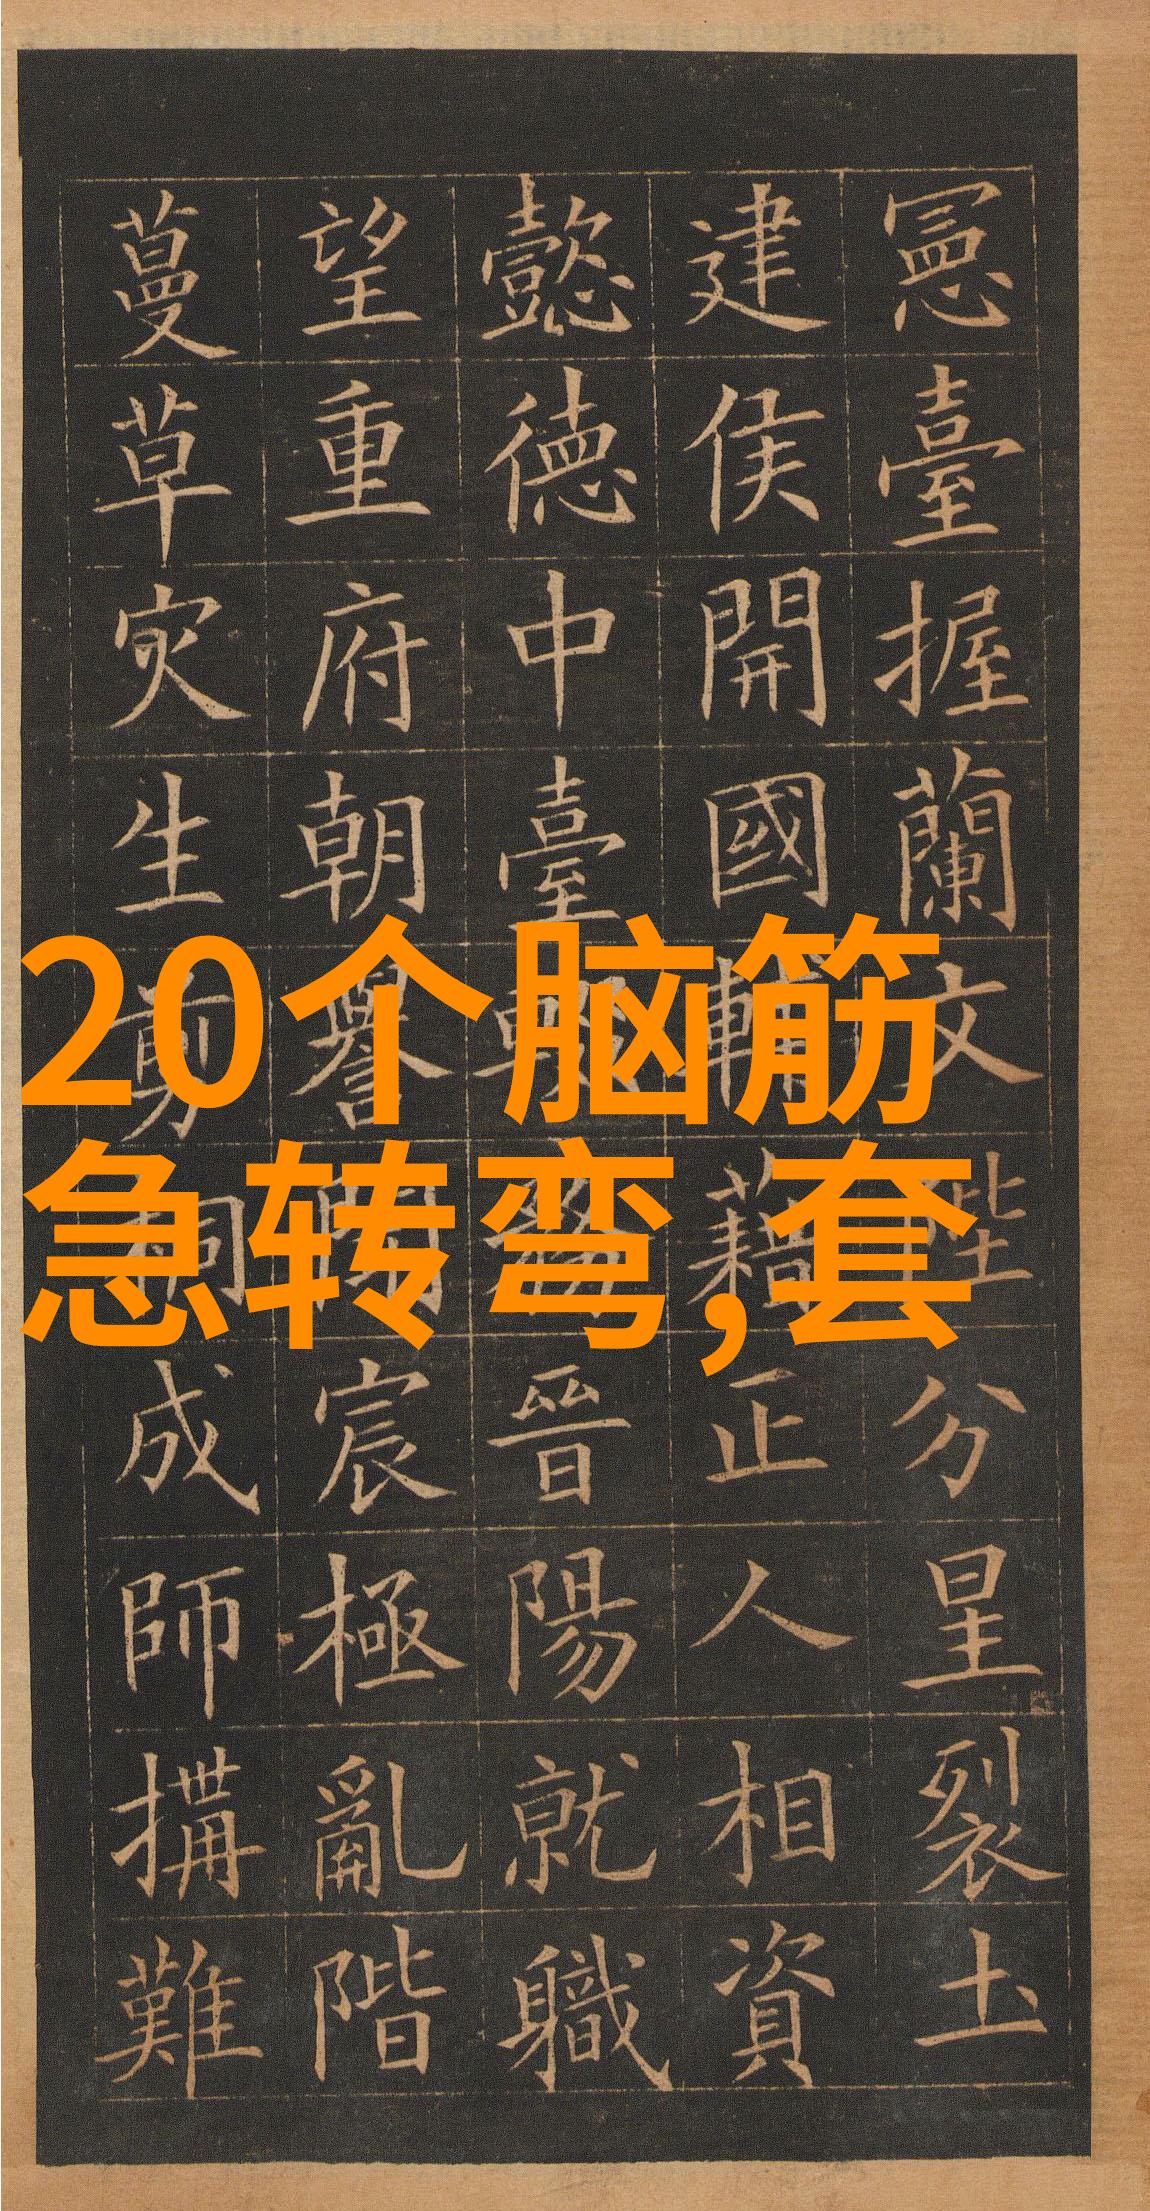 憲臺握蘭文陛分星裂土
建侯開國藉正人相資
懿德中臺晉陽就職
望重府朝譽聞宸極亂階
蔓草灾生剪桐成師搆難
20个脑筋
急转弯,套